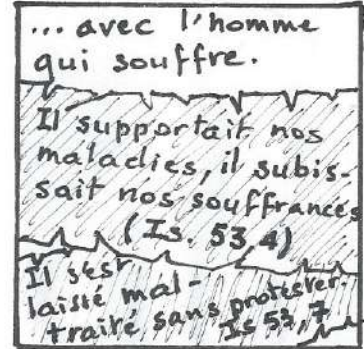 ... avec l'homme
qui souffre.
Il supportait nos
maladies, il subis-
sait nos souffrances
(Is. 53,4)
Il s'est
laissé mal-
traité sans protester.
Is 53,7